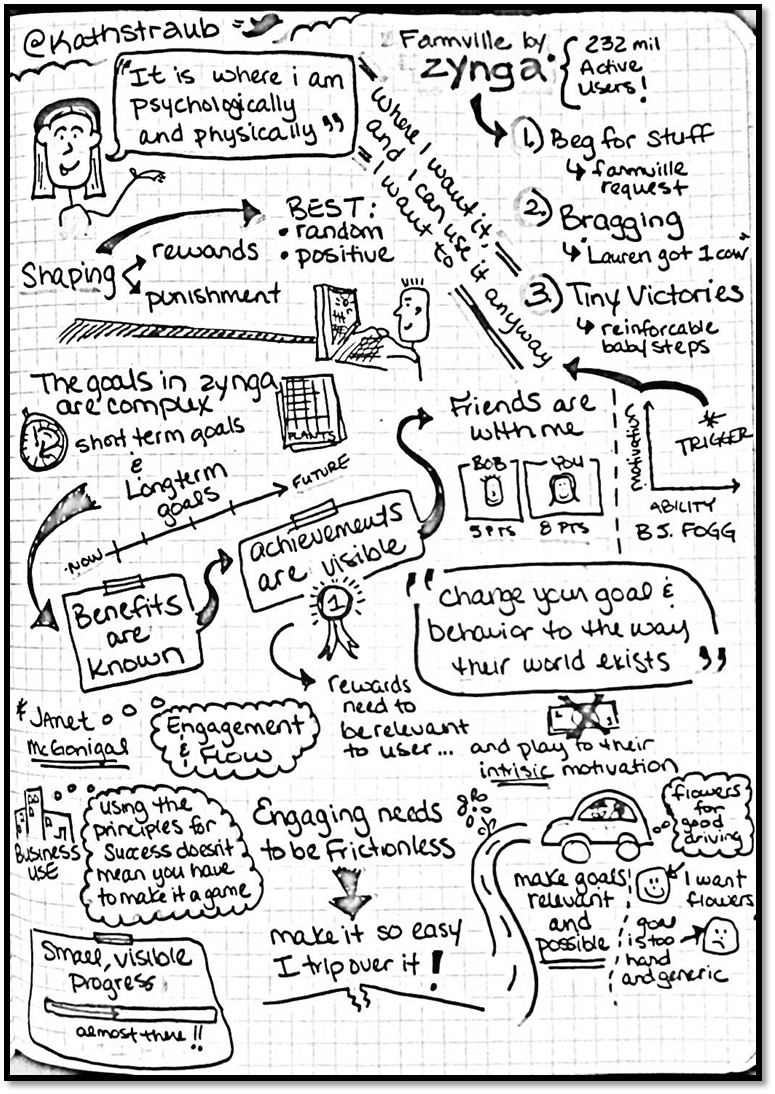 @Kathstraub
"It is where i am
psychologically
and physically"
where I want it,
and I can use it anyway
I want to
Farmville by
zynga
232 mil
Active
users!
1. Beg for stuff
farmville
request
2. Bragging
"Lauren got 1 cow"
3. Tiny Victories
reinforcable
baby steps
Shaping
rewards
punishment
BEST:
• random
• positive
The goals in zynga
are complex
short term goals
&
Longterm
goals
PLANTS
NOW
FUTURE
Benefits
are
known
achievements
are visible
1
Friends are
with me
BOB
YOU
5 PTS
8 PTS
MOTIVATION
TRIGGER
ABILITY
BJ. FOGG
rewards
need to
be relevant
to user...
"change your goal &
behavior to the way
their world exists"
and play to their
intrisic motivation
* JANET
McGonigal
Engagement
& Flow
BUSINESS
USE
using the
principles for
success doesn't
mean you have
to make it a game
Engaging needs
to be frictionless
make it so easy
I trip over it!
Small, visible
progress
almost there!!
flowers
for
good
driving
make goals
relevant
and
possible
I want
flowers
goal
is too
hard
and generic